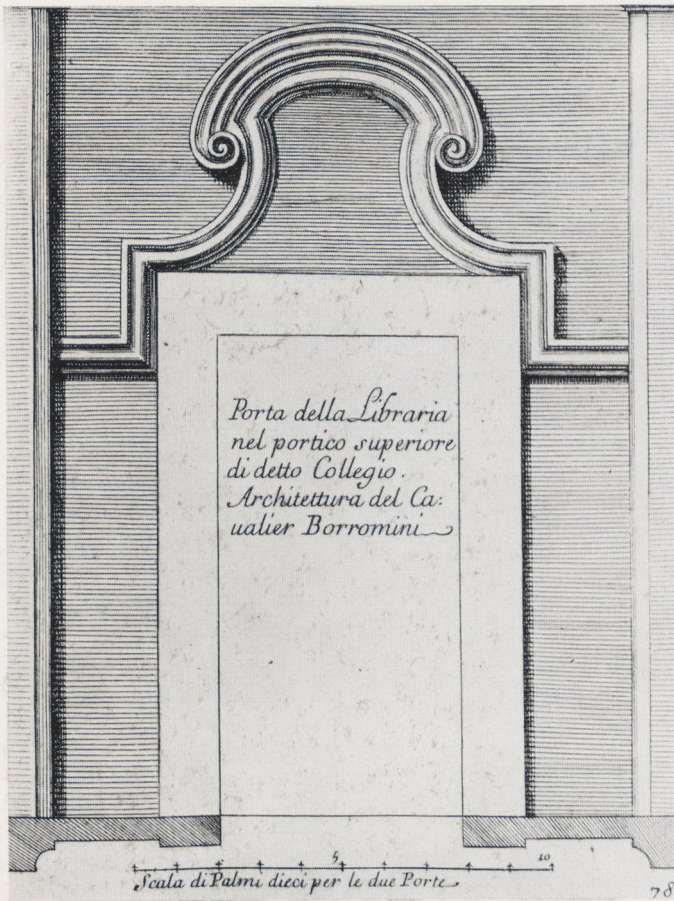 Porta della Libraria
nel portico superiore
di detto Collegio.
Architettura del Ca:
ualier Borromini
5 10
Scala di Palmi dieci per le due Porte
78